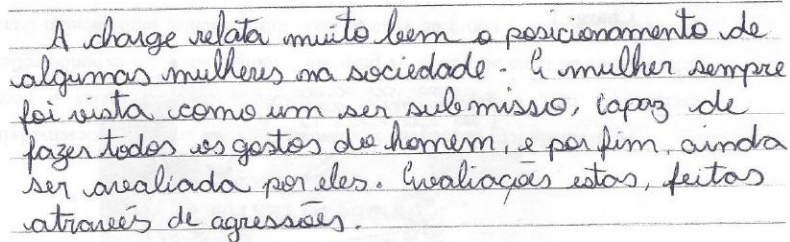 A charge relata muito bem o posicionamento de
algumas mulheres na sociedade. A mulher sempre
foi vista como um ser submisso, capaz de
fazer todos os gostos do homem, e por fim, ainda
ser avaliada por eles. Avaliações estas, feitas
através de agressões.